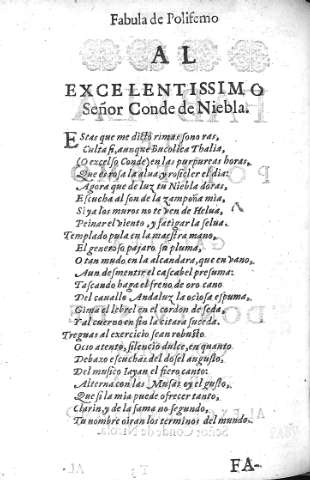 Fabula de Polifemo
AL
EXCELENTISSIMO
Señor Conde de Niebla.
Estas que me dictò rimas sonoras,
Culta si, aunque Bucolica Thalia,
(O excelso Conde) en las purpureas horas,
Que es rosa la alua, y rosicler el dia:
Agora que de luz tu Niebla doras,
Escucha al son de la zampoña mia,
Si ya los muros no te ven de Helua,
Peinar el viento, y fatigar la selua.
Templado pula en la maestra mano,
El generoso pajaro su pluma,
O tan mudo en la alcandara, que en vano,
Aun desmentir el cascabel presuma:
Tascando haga el freno de oro cano
Del cauallo Andaluz la ociosa espuma,
Gima el lebrel en el cordon de seda,
Y al cuerno en fin la citara suceda.
Treguas al exercicio sean robusto
Ocio atento, silencio dulce, en quanto
Debaxo escuchas del dosel augusto,
Del musico jayan el fiero canto:
Alterna con las Musas oy el gusto,
Que si la mia puede ofrecer tanto,
Clarin, y de la fama no segundo,
Tu nombre oiran los terminos del mundo.
FA-